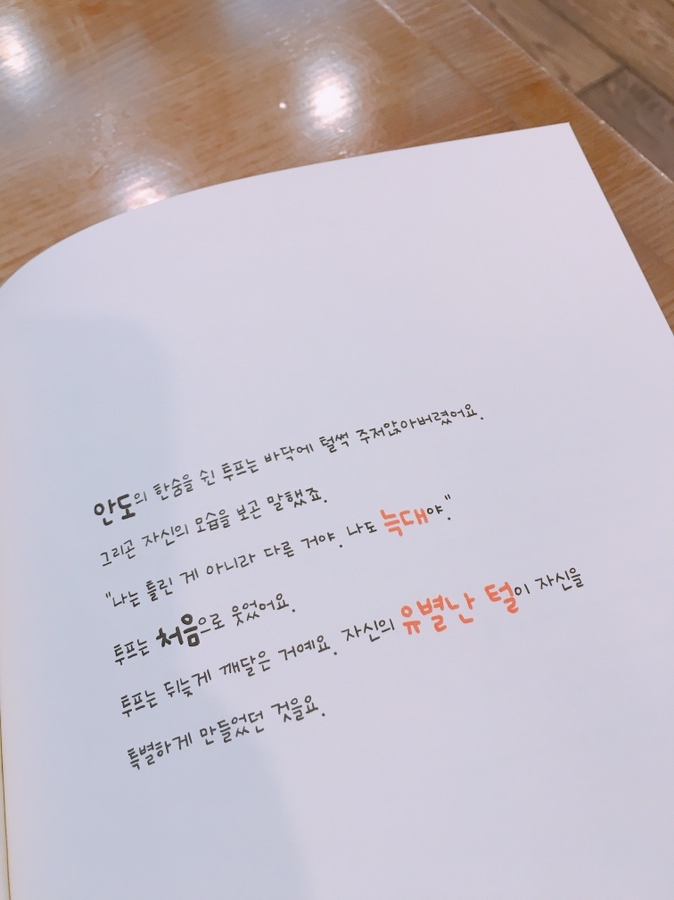 안도의 한숨을 쉰 투프는 바닥에 털썩 주저앉아버렸어요.
그리곤 자신의 모습을 보곤 말했죠.
"나는 틀린 게 아니라 다른 거야. 나도 늑대야."
투프는 처음으로 웃었어요.
투프는 뒤늦게 깨달은 거예요. 자신의 유별난 털이 자신을
특별하게 만들었던 것을요.